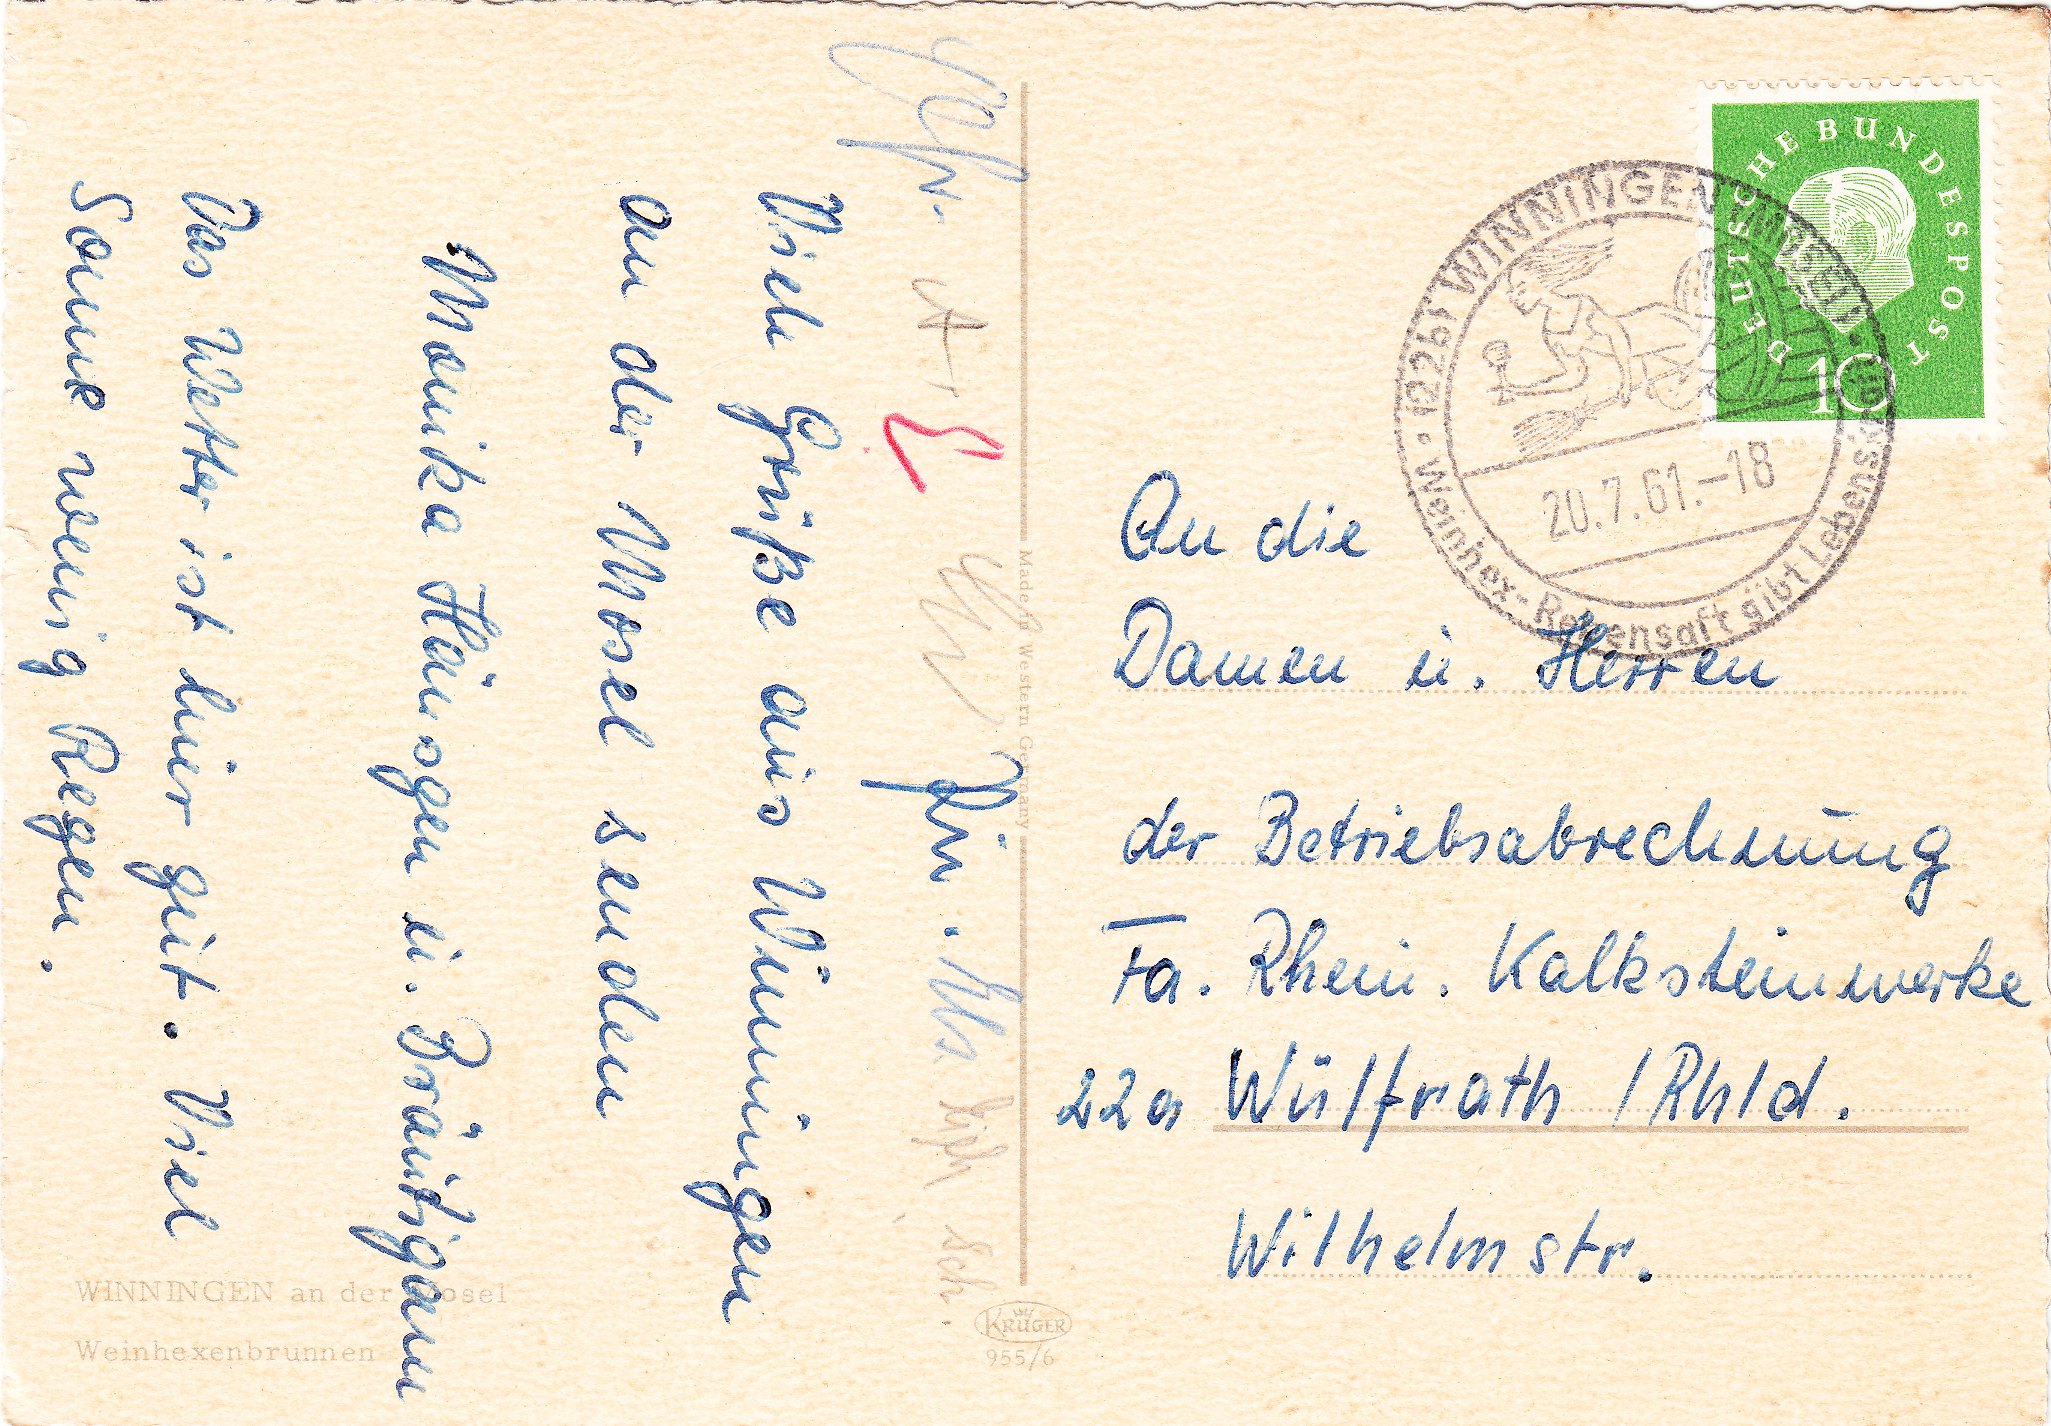 Viele Grüße aus Winningen
an der Mosel senden
Monika Häusgen u. Bräutigam
Das Wetter ist hier gut. Viel
Sonne wenig Regen.
DEUTSCHE BUNDESPOST
10
(22b) WINNINGEN (MOSEL)
20.7.61.-18
Weinhex - Rebensaft gibt Lebens
An die
Damen u. Herren
der Betriebsabrechnung
Fa. Rhein. Kalksteinwerke
22a Wülfrath /Rhld.
Wilhelmstr.
Made in Western Germany
WINNINGEN an der Mosel
Weinhexenbrunnen
KRÜGER
955/6